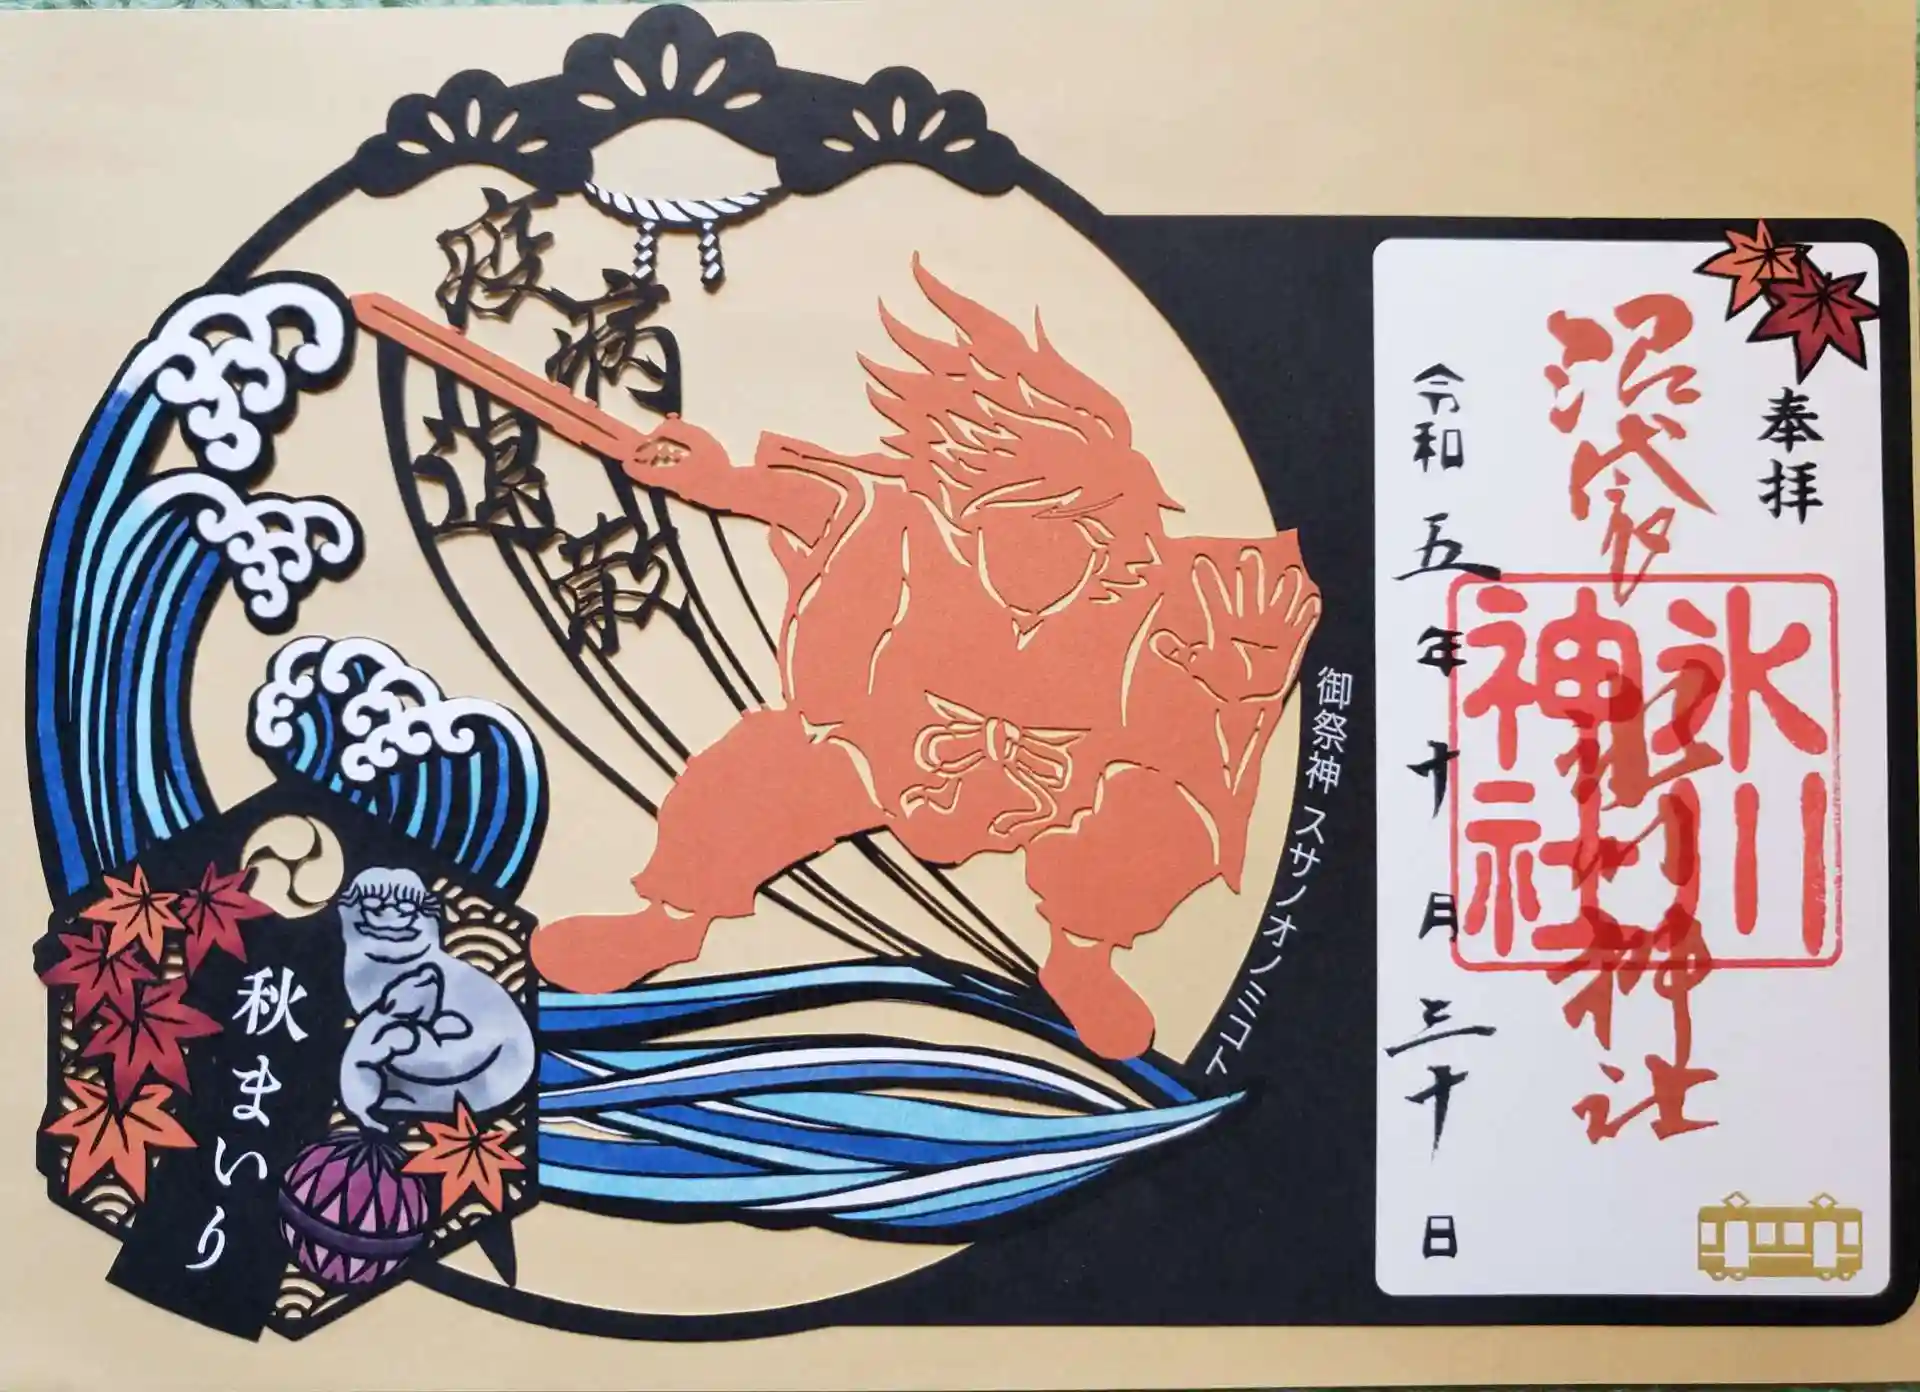 奉拝
沼袋
氷川神社
氷川
神社
令和五年十月三十日
御祭神 スサノオノミコト
疫病
退散
秋まいり